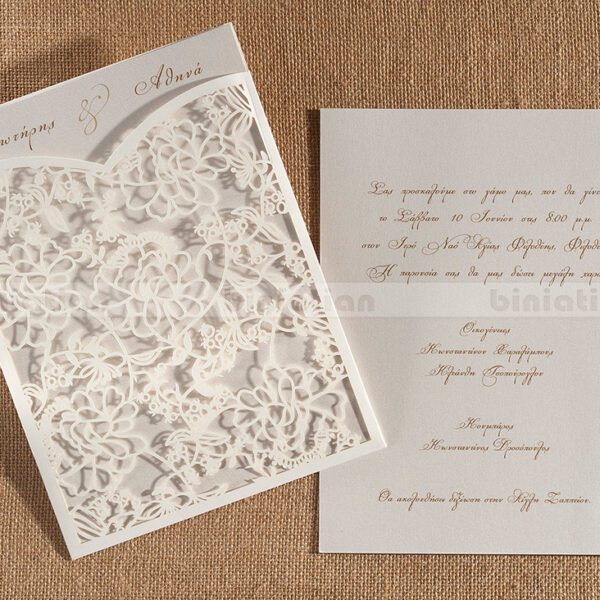 &
Αθηνά
Σας προσκαλούμε στο γάμο μας, που θα
το Σάββατο 10 Ιουνίου στις 8.00 μ.μ.
στον Ιερό Ναό Αγίας Φιλοθέης,
Η παρουσία σας θα μας δώσει μεγάλη
Οικογένειες
Κωνσταντίνου Χαραλάμπους
Τσοπούρογλου
Κουμπάρος
Κωνσταντίνος Δροσόπουλος
Θα ακολουθήσει δεξίωση στην Αίγλη Ζαππείου.
biniatian